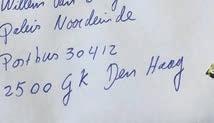 Willem van
Paleis Noordeinde
Postbus 30412
2500 GK Den Haag